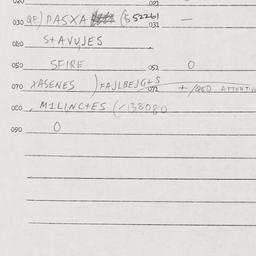 020 021
030 QF) DASXA (552261 031 —
040 STAVUJES
050 SFIRE 051 0
070 XASENES ) FAJLBEJGTS 072 + /QEO ATTENTIO
, MILINCTES (/138080
090 0